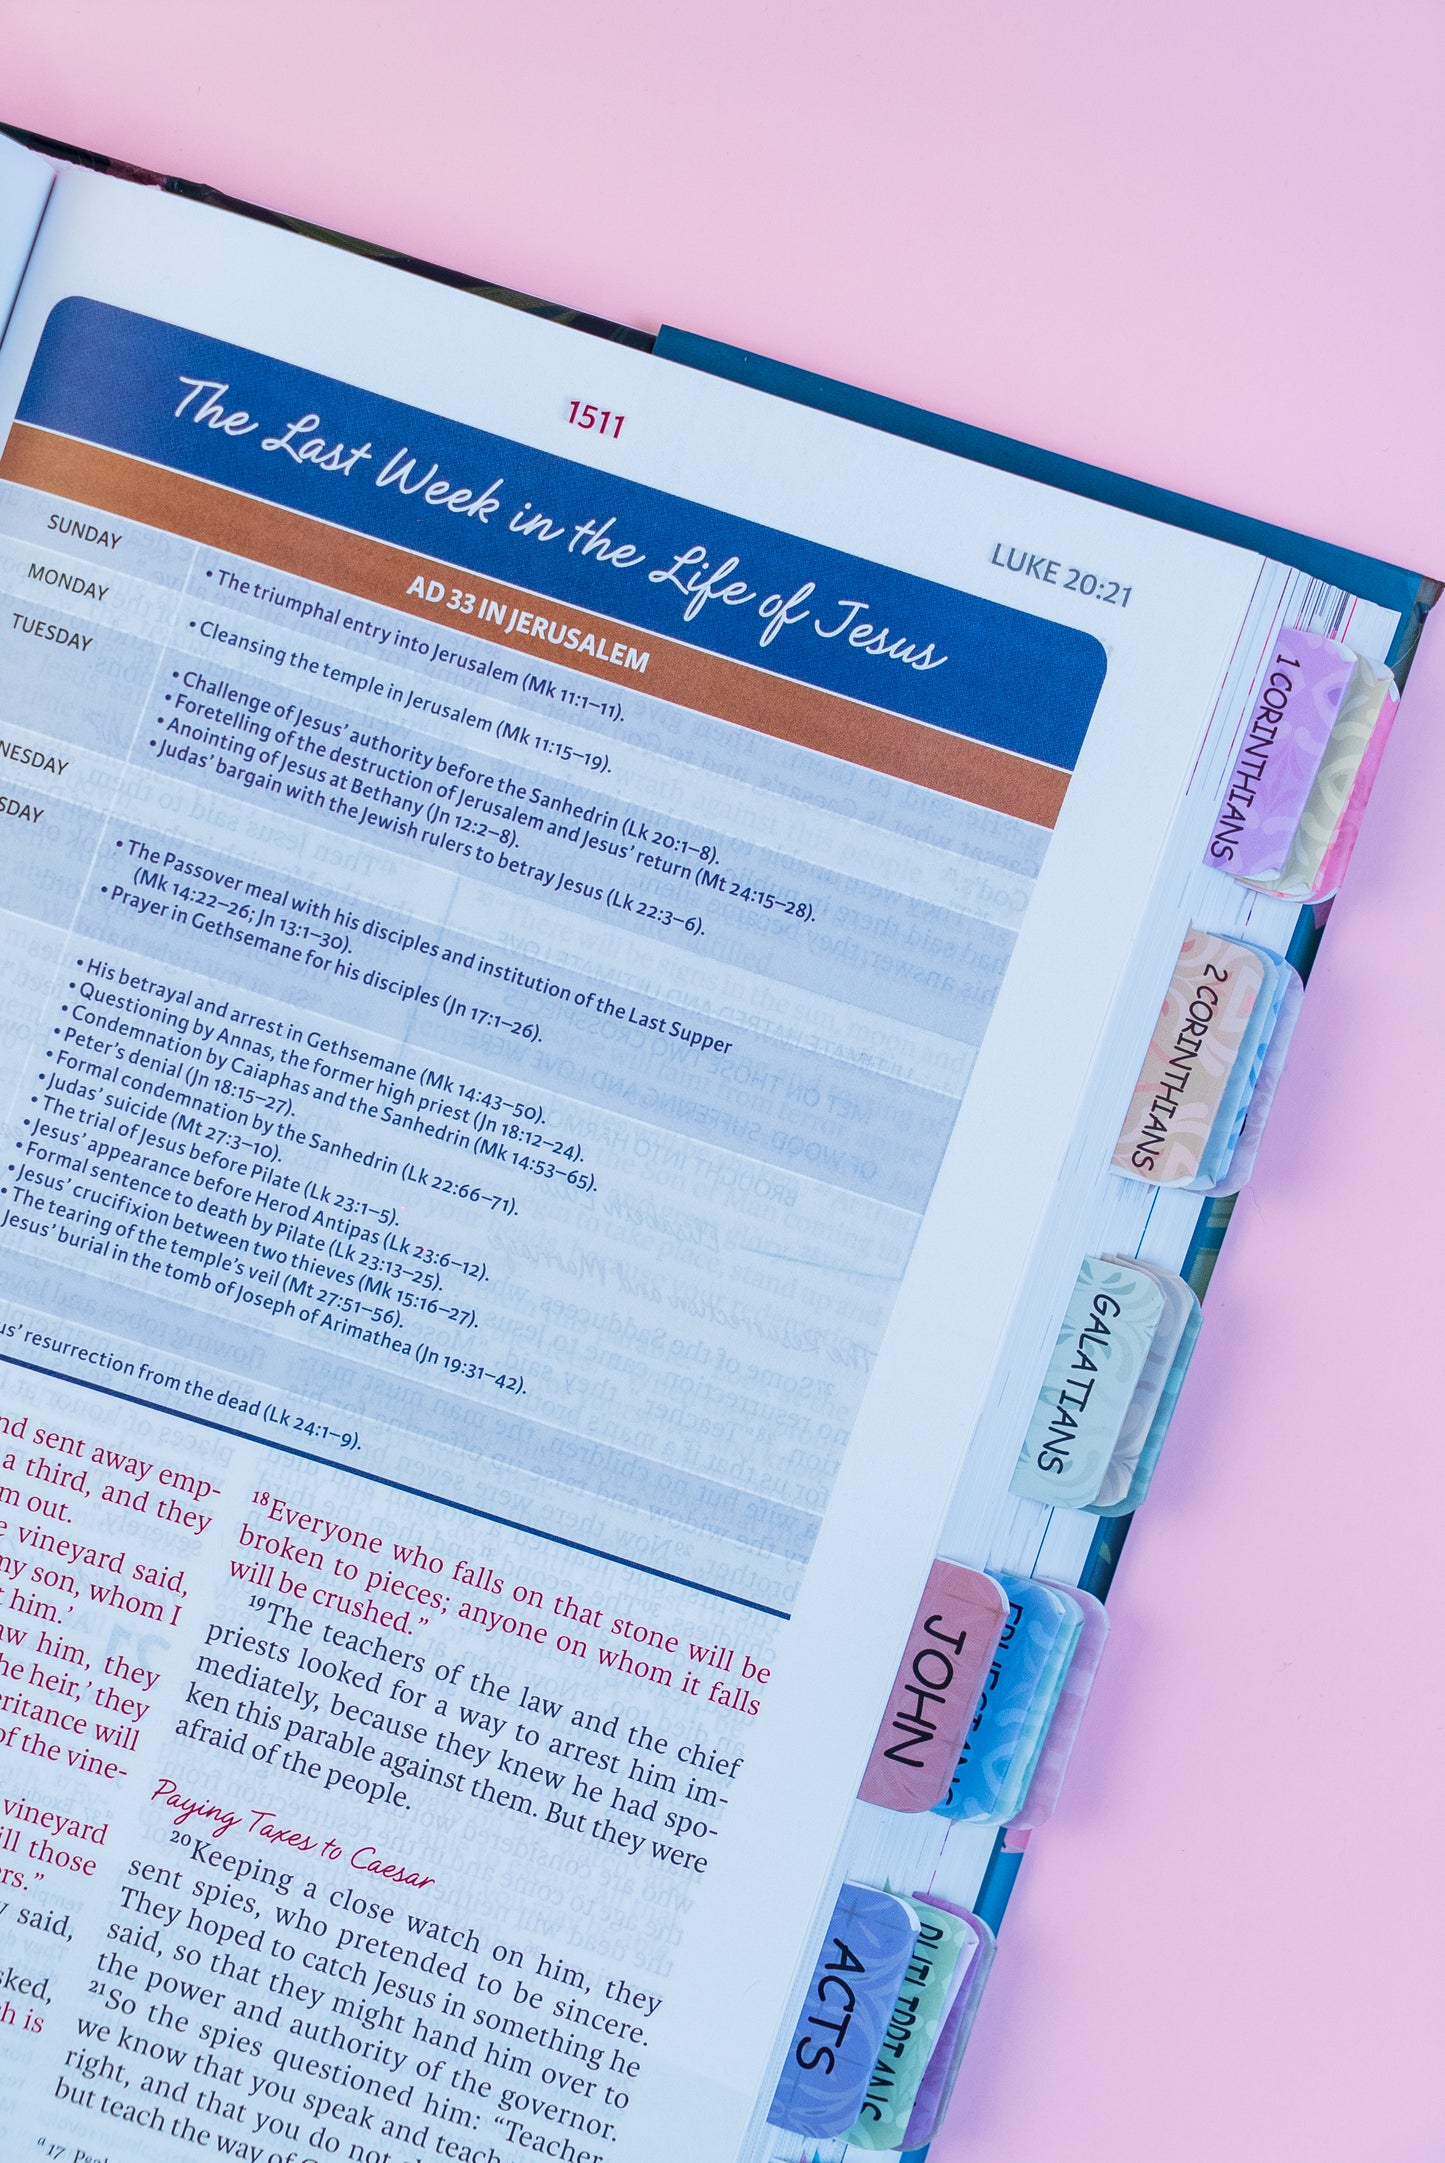 1511
LUKE 20:21
The Last Week in the Life of Jesus
AD 33 IN JERUSALEM
SUNDAY
• The triumphal entry into Jerusalem (Mk 11:1–11).
MONDAY
• Cleansing the temple in Jerusalem (Mk 11:15–19).
TUESDAY
• Challenge of Jesus' authority before the Sanhedrin (Lk 20:1–8).
• Foretelling of the destruction of Jerusalem and Jesus' return (Mt 24:15–28).
• Anointing of Jesus at Bethany (Jn 12:2–8).
• Judas' bargain with the Jewish rulers to betray Jesus (Lk 22:3–6).
NESDAY
SDAY
• The Passover meal with his disciples and institution of the Last Supper
(Mk 14:22–26; Jn 13:1–30).
• Prayer in Gethsemane for his disciples (Jn 17:1–26).
• His betrayal and arrest in Gethsemane (Mk 14:43–50).
• Questioning by Annas, the former high priest (Jn 18:12–24).
• Condemnation by Caiaphas and the Sanhedrin (Mk 14:53–65).
• Peter's denial (Jn 18:15–27).
• Formal condemnation by the Sanhedrin (Lk 22:66–71).
• Judas' suicide (Mt 27:3–10).
• The trial of Jesus before Pilate (Lk 23:1–5).
• Jesus' appearance before Herod Antipas (Lk 23:6–12).
• Formal sentence to death by Pilate (Lk 23:13–25).
• Jesus' crucifixion between two thieves (Mk 15:16–27).
• The tearing of the temple's veil (Mt 27:51–56).
Jesus' burial in the tomb of Joseph of Arimathea (Jn 19:31–42).
us' resurrection from the dead (Lk 24:1–9).
nd sent away emp-
a third, and they
m out.
e vineyard said,
my son, whom I
t him.'
aw him, they
he heir,' they
eritance will
of the vine-
vineyard
ill those
ers."
y said,
sked,
ch is
18 Everyone who falls on that stone will be
broken to pieces; anyone on whom it falls
will be crushed."
19 The teachers of the law and the chief
priests looked for a way to arrest him im-
mediately, because they knew he had spo-
ken this parable against them. But they were
afraid of the people.
Paying Taxes to Caesar
20 Keeping a close watch on him, they
sent spies, who pretended to be sincere.
They hoped to catch Jesus in something he
said, so that they might hand him over to
the power and authority of the governor.
21 So the spies questioned him: "Teacher,
we know that you speak and teach
right, and that you do not
but teach the way of
a 17
1 CORINTHIANS
2 CORINTHIANS
GALATIANS
JOHN
ACTS